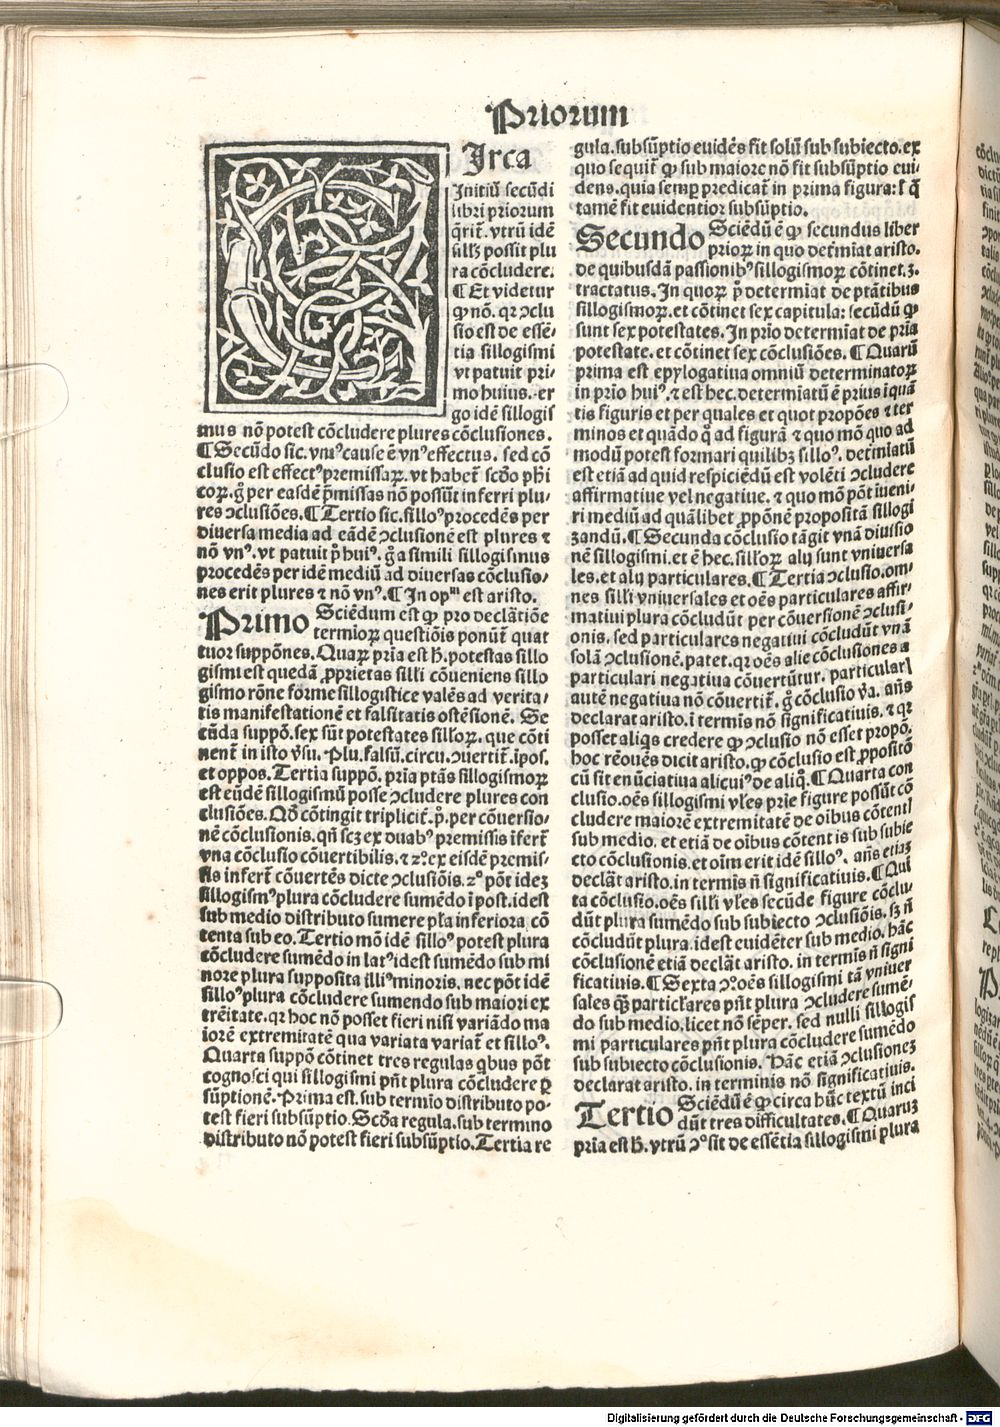 Priorum
CIrca
Initiū secūdi
libri priorum
q̄rit᷑. vtrū idē
sill'ꝫ possit plu
ra cōcludere.
¶ Et videtur
ꝙ nō. qꝛ ↄclu
sio est de essē-
tia sillogismi
vt patuit pri-
mo huius. er-
go idē sillogis
mus nō potest cōcludere plures cōclusiones.
¶ Secūdo sic. vniꝰ cause ē vnꝰ effectus. sed cō
clusio est effectꝰ premissaꝝ. vt habet᷑ scd̄o ph̄i
coꝝ. g̊ per easdē p̄missas nō possūt inferri plu-
res ↄclusiōes. ¶ Tertio sic. silloꝰ procedēs per
diuersa media ad eādē ↄclusionē est plures ⁊
nō vnꝰ. vt patuit pͥ huiꝰ. g̊ a simili sillogismus
procedēs per idē mediū ad diuersas cōclusio-
nes erit plures ⁊ nō vnꝰ. ¶ In opᵐ est aristo.
Primo Sciēdum est ꝙ pro declatiōe
termioꝝ questiōis ponūt᷑ quat
tuor suppōnes. Quaꝝ pria est ħ. potestas sillo
gismi est quedā ꝓprietas silli cōueniens sillo
gismo rōne forme sillogistice valēs ad verita-
tis manifestationē et falsitatis ostēsionē. Se
cūda suppō. sex sūt potestates silloꝝ. que cōti
nent᷑ in isto v̄su. Plu. falsū. circu. ↄuertit᷑. ipos.
et oppos. Tertia suppō. pria ptās sillogismoꝝ
est eūdē sillogismū posse ↄcludere plures con
clusiōes. Qd̄ cōtingit triplicit᷑. pͥ. per cōuersio-
nē cōclusionis. qn̄ scꝫ ex duabꝰ premissis īfert᷑
vna cōclusio cōuertibilis. ⁊ 2º. ex eisdē premis-
sis infert᷑ cōuertēs dicte ↄclusiōis. 2º pōt ideꝫ
sillogismꝰ plura cōcludere sumēdo ī post. idest
sub medio distributo sumere pl'a inferiora cō
tenta sub eo. Tertio mō idē silloꝰ potest plura
cōcludere sumēdo in latꝰ idest sumēdo sub mi
nore plura supposita illiꝰ minoris. nec pōt idē
silloꝰ plura cōcludere sumendo sub maiori ex
trēitate. qꝛ hoc nō posset fieri nisi variādo ma
iorē extremitatē qua variata variat᷑ et silloꝰ.
Quarta suppō cōtinet tres regulas qbus pōt
cognosci qui sillogismi pn̄t plura cōcludere ꝑ
sūptionē. Prima est. sub termio distributo po-
test fieri subsūptio. Scd̄a regula. sub termino
distributo nō potest fieri subsūptio. Tertia re
gula. subsūptio euidēs fit solū sub subiecto. ex
quo sequit᷑ ꝙ sub maiore nō fit subsūptio eui-
dens. quia semꝑ predicat᷑ in prima figura: l' q̄
tamē fit euidentior subsūptio.
Secundo Sciēdū ē ꝙ secundus liber
prioꝝ in quo det᷑miat aristo.
de quibusdā passionibꝰ sillogismoꝝ cōtinet. 3.
tractatus. In quoꝝ pͥ determiat de ptātibus
sillogismoꝝ. et cōtinet sex capitula: secūdū ꝙ
sunt sex potestates. In prio determiat de pria
potestate. et cōtinet sex cōclusiōes. ¶ Quarū
prima est epylogatiua omniū determinatoꝝ
in prio huiꝰ. ⁊ est hec. determiatū ē prius ī quā
tis figuris et per quales et quot propōes ⁊ ter
minos et quādo q̄ ad figurā ⁊ quo mō quo ad
modū potest formari quilibꝫ silloꝰ. det᷑miatū
est etiā ad quid respiciēdū est volēti ↄcludere
affirmatiue vel negatiue. ⁊ quo mō pōt iueni-
ri mediū ad quālibet ꝓpōnē propositā sillogi
zandū. ¶ Secunda cōclusio tāgit vnā diuisio
nē sillogismi. et ē hec. silloꝝ alij sunt vniuersa
les. et alij particulares. ¶ Tertia ↄclusio. om-
nes silli vniuersales et oēs particulares affir-
matiui plura cōcludūt per cōuersionē ↄclusi-
onis. sed particulares negatiui cōcludūt vnā
solā ↄclusionē. patet. qꝛ oēs alie cōclusiones a
particulari negatiua cōuertūtur. particularꝭ
autē negatiua nō cōuertit᷑. g̊ cōclusio v̄a. an̄s
declarat aristo. ī termis nō significatiuis. ⁊ qꝛ
posset aliqͥs credere ꝙ ↄclusio nō esset propō.
hoc rēouēs dicit aristo. ꝙ cōclusio est ꝓpositō
cū sit enūciatiua alicuiꝰ de aliqͦ. ¶ Quarta con
clusio. oēs sillogismi vl'es prie figure possūt cō
cludere maiorē extremitatē de oibus cōtentꝭ
sub medio. et etiā de oibus cōtent is sub subie
cto cōclusionis. et oīm erit idē silloꝰ. an̄s etiaꝫ
declāt aristo. in termis n̄ significatiuis. ¶ Qui
ta cōclusio. oēs silli vl'es secūde figure cōclu-
dūt plura sumēdo sub subiecto ↄclusiōis. sꝫ n̄
cōcludūt plura. idest euidēter sub medio. hāc
cōclusionē etiā declāt aristo. in termis n̄ signi
ficatiuis. ¶ Sexta ↄº. oēs sillogismi tā vniuer
sales qꝫ̄ particl'ares pn̄t plura ↄcludere sumē-
do sub medio. licet nō sēper. sed nulli sillogis
mi particulares pn̄t plura cōcludere sumēdo
sub subiecto cōclusionis. hāc etiā ↄclusioneꝫ
declarat aristo. in terminis nō significatiuis.
Tertio Sciēdū ē ꝙ circa hūc textū inci
dūt tres difficultates. ¶ Quaruꝫ
pria est ħ. vtrū ↄº sit de essētia sillogismi plura
Digitalisierung gefördert durch die Deutsche Forschungsgemeinschaft - DFG